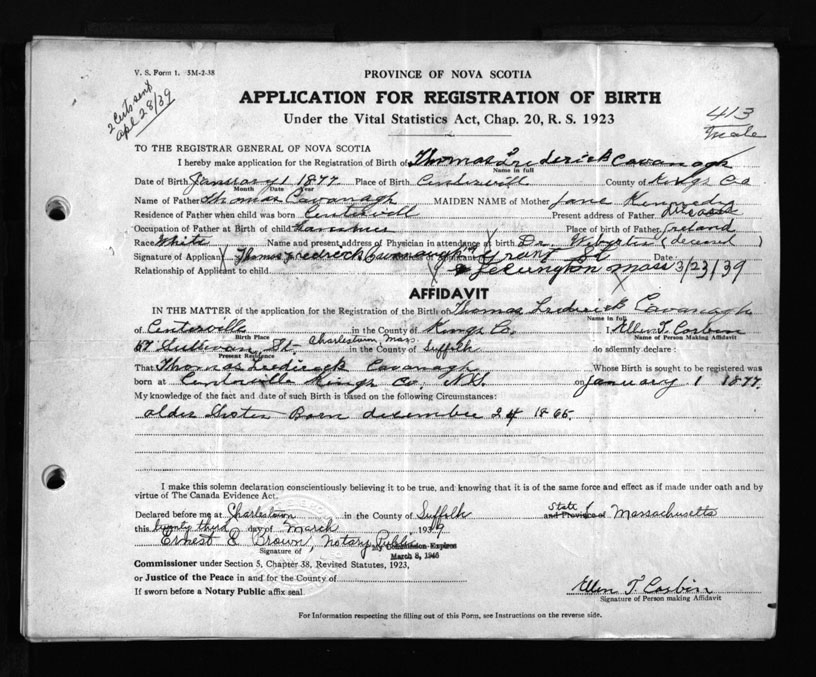 V. S. Form 1. 3M-2-38
2 Certs sent
Apl 28/39
PROVINCE OF NOVA SCOTIA
APPLICATION FOR REGISTRATION OF BIRTH
Under the Vital Statistics Act, Chap. 20, R. S. 1923
413
Male
TO THE REGISTRAR GENERAL OF NOVA SCOTIA
I hereby make application for the Registration of Birth of Thomas Frederick Cavanagh
Name in full
Date of Birth January 1 1877 Place of Birth Centervill County of Kings Co
Month Date Year
Name of Father Thomas Cavanagh MAIDEN NAME of Mother Jane Kennedy
Residence of Father when child was born Centervill Present address of Father
Occupation of Father at Birth of child Place of birth of Father Ireland
Race White Name and present address of Physician in attendance at birth Dr.
Signature of Applicant Thomas Fredrick Cavanaugh 19 Grant St Date
Relationship of Applicant to child Lexington Mass 3/23/39
AFFIDAVIT
IN THE MATTER of the application for the Registration of the Birth of Thomas Frederick Cavanagh
Name in full
of Centerville in the County of Kings Co. I, Ellen T. Corbin
Birth Place Name of Person Making Affidavit
57 Sullivan St- Charlestown, Mass. in the County of Suffolk do solemnly declare:
Present Residence
That Thomas Fredirock Cavanagh Whose Birth is sought to be registered was
born at Centerville Kings Co. N.S. on January 1 1877.
My knowledge of the fact and date of such Birth is based on the following Circumstances:
older Sister Born december 24 1865.
I make this solemn declaration conscientiously believing it to be true, and knowing that it is of the same force and effect as if made under oath and by
virtue of The Canada Evidence Act.
Declared before me at Charlestown in the County of Suffolk State and Province of Massachusetts
this twenty third day of March 1939
Ernest E Brown, Notary Public My Commission Expires
Signature of March 8, 1945
Commissioner under Section 5, Chapter 38, Revised Statutes, 1923,
or Justice of the Peace in and for the County of
If sworn before a Notary Public affix seal.
Ellen T. Corbin
Signature of Person making Affidavit
For Information respecting the filling out of this Form, see Instructions on the reverse side.